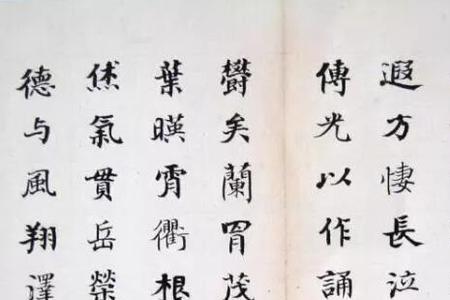 遐方悽長泣
傳光以作誦
欝矣蘭胄茂
葉暎霄衢根
烋氣貫岳榮
德与風翔澤